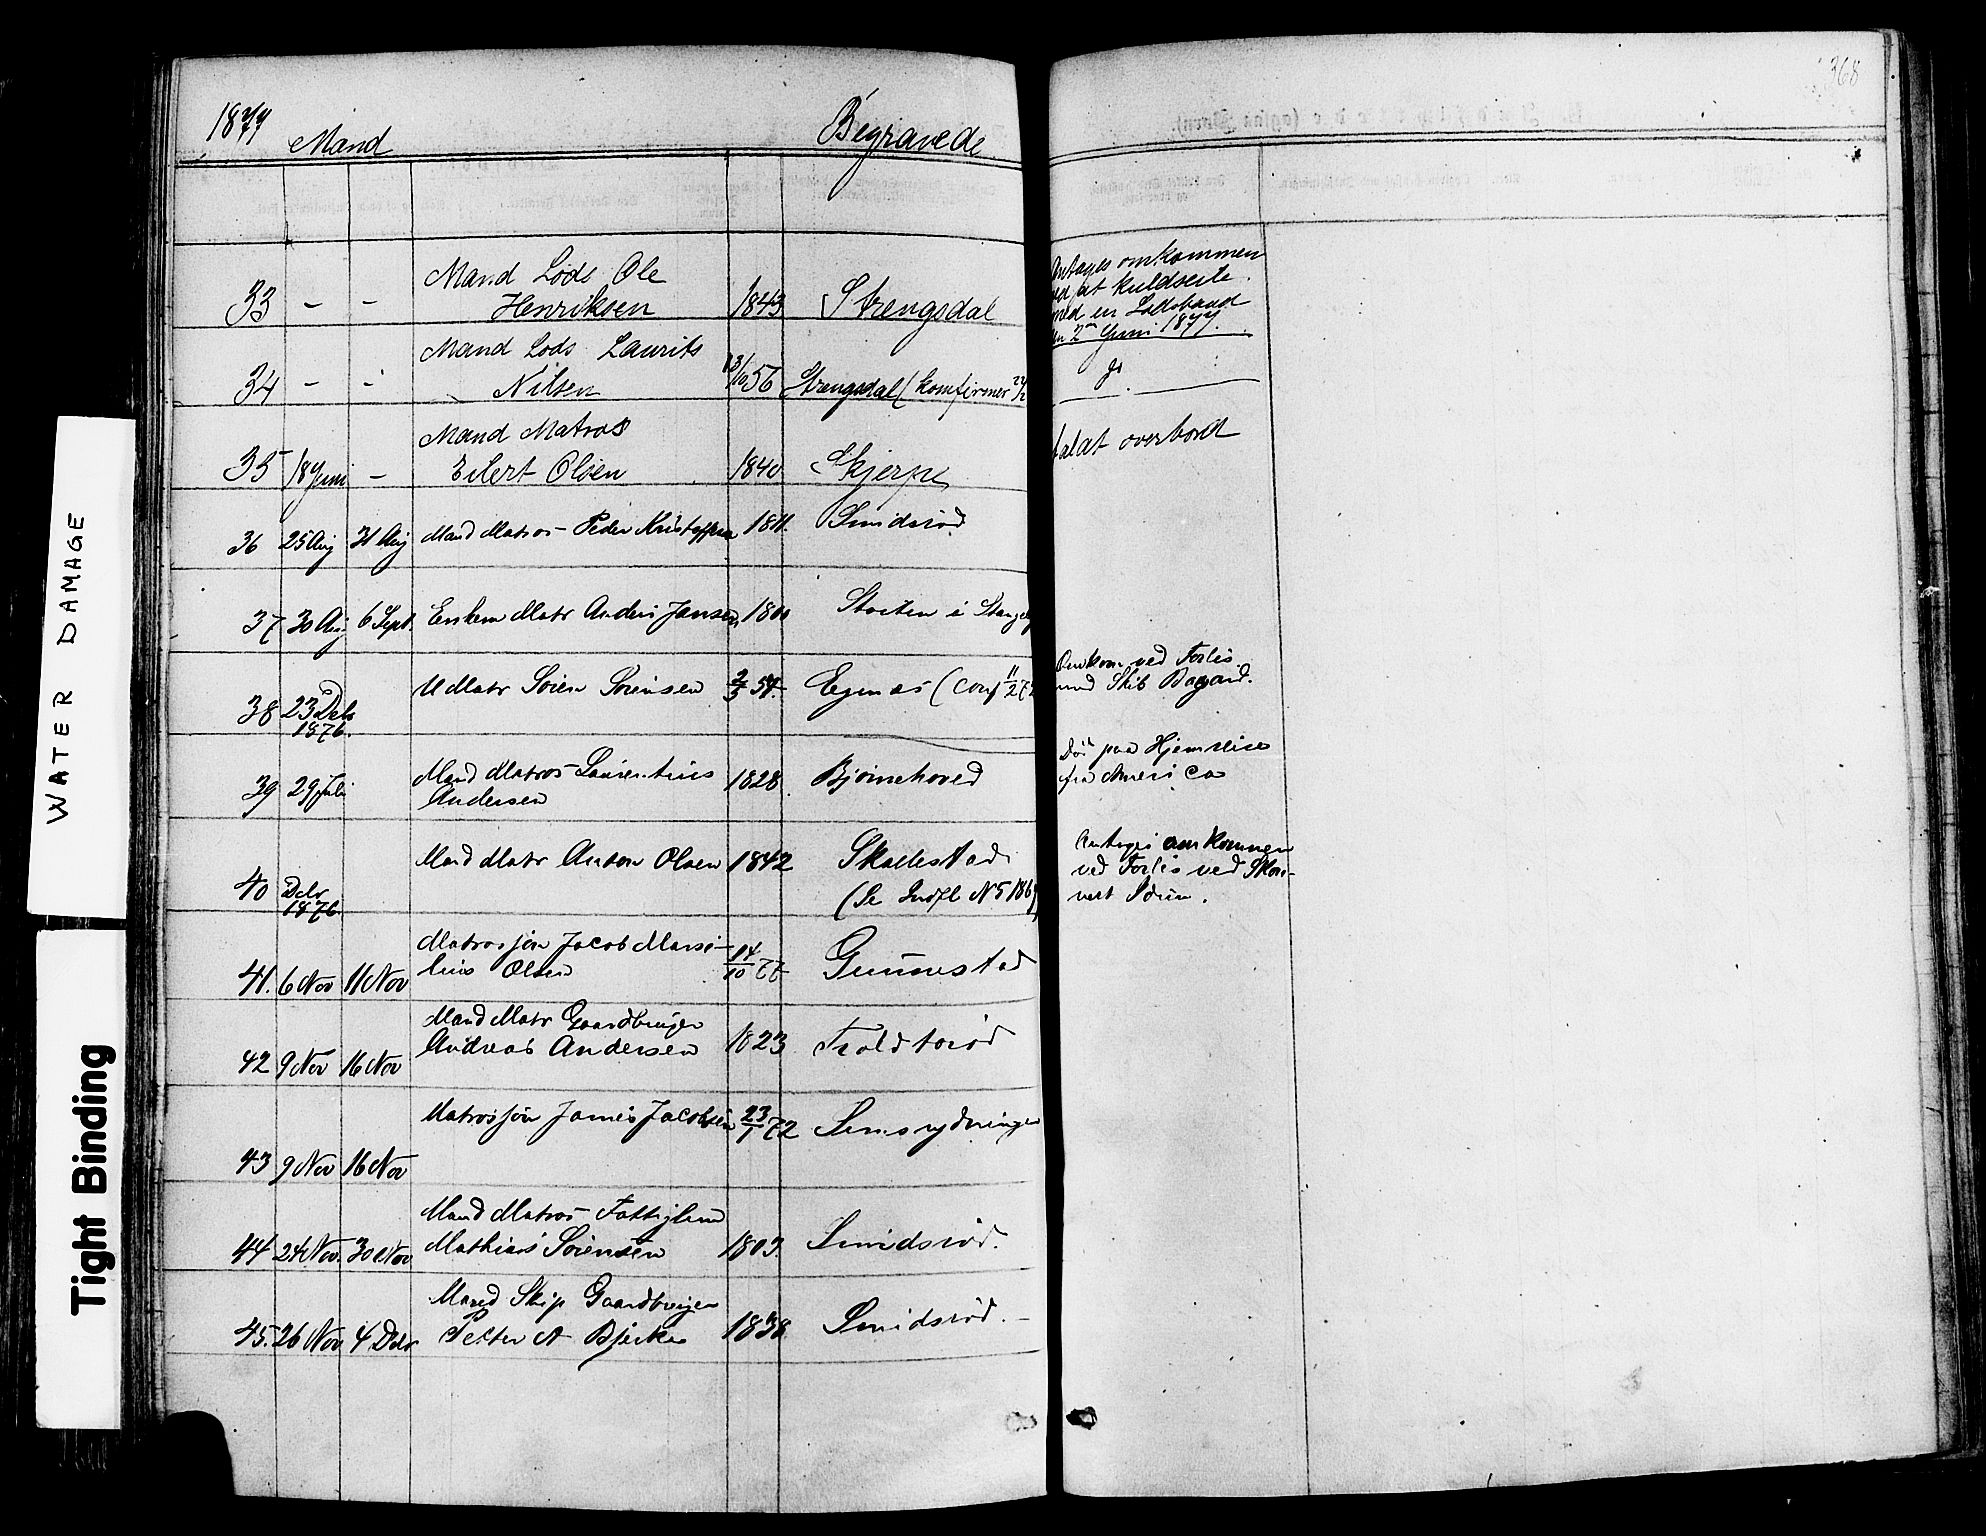 368
1877 Mand Begravede
33 - - Mand Lods Ole 1843 Strengsdal Antages omkommen
Henriksen ved at kuldseile
med en Lodsbaad
den 2den Juni 1877.
34 - - Mand Lods Laurits 13/10 56 Strengsdal (komfirmer
Nilsen
35 18 Juni - Mand Matros 1840 Skjerpe falat overbord
Eilert Olsen
36 25 Aug 31 Aug Mand Matros Peder Kristoffersen 1811. Smidsrød
37 30 Aug 6 Sept. Enkem Matr Anders Jansen 1800 i
38 23 Debr 1876. UMatr Søren Sørensen 2/3 57. Egenes (Conf 11/2 72 Omkom ved Forlis
med Skib
39 29 Juli Mand Matros Laurentius 1828 Bjørnehoved Død paa Hjemreise
Andersen fra America
40 Debr 1876. Mand Matr Anton Olsen 1842 Skallestad Antages omkommen
(Se Indfl N 5 186 ved Forlis ved
41. 6 Nov 11 Nov Matros søn Jacob Marsi- 14/10 77 Gunnestad
lius Olsen
42 9 Nov 16 Nov Mand Matr Gaardbruger 1823
Andreas Andersen
43 9 Nov 16 Nov Matrossøn James Jacobsen 23/1 72
44 24 Nov. 30 Nov Mand Matros Fattiglem 1803. Smidsrød.
Mathias Sørensen
45. 26 Nov 4 Debr Mand Skip Gaardbruger 1838 Smidsrød. -
Petter A Bjerke
WATER DAMAGE
Tight Binding